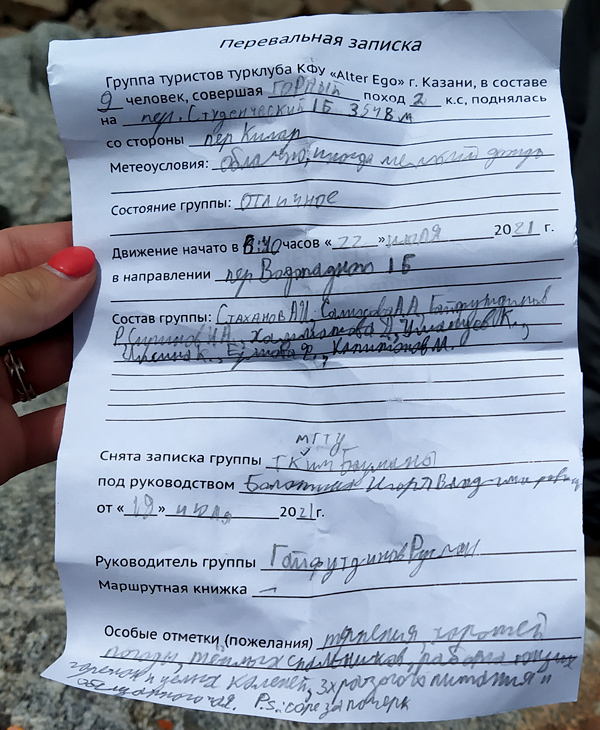 Перевальная записка
Группа туристов турклуба КФУ «Alter Ego» г. Казани, в составе
9 человек, совершая горный поход 2 к.с, поднялась
на пер. Студенческий 1Б 3548 м
со стороны пер Килар
Метеоусловия: Облачно, иногда мелкий дождь
Состояние группы: отличное
Движение начато в 8:40 часов «22» июля 2021 г.
в направлении пер Водопадный 1Б
Состав группы: Стаханов АИ, Салихова АА, Гайфутдинов
Р,
К., Ф., Капитонов М.
Снята записка группы МГТУ
ТК им Баумана
под руководством Игоря Владимировича
от «19» июля 2021 г.
Руководитель группы Гайфутдинов Руслан
Маршрутная книжка —
Особые отметки (пожелания) терпения, хорошей
погоды, тёплых спальников, работающих
горелок и целых коленей, 3х разового питания и
P.s.: соре за почерк